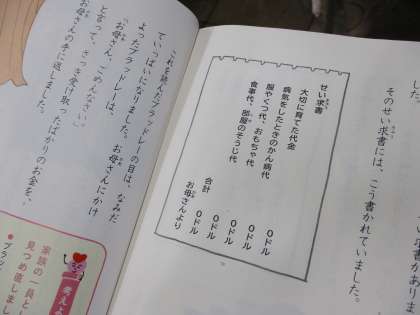 した。
そのせい求書には、こう書かれていました。
せい求書
大切に育てた代金　0ドル
病気をしたときのかん病代　0ドル
服やくつ代、おもちゃ代　0ドル
食事代、部屋のそうじ代　0ドル
合計　0ドル
お母さんより
これを読んだブラッドレーの目は、なみだ
でいっぱいになりました。お母さんにかけ
よったブラッドレーは、
「お母さん、ごめんなさい。」
と言って、さっき受け取ったばかりのお金を、
お母さんの手に返しました。
考えよ
家族の一員とし
見つめ直しまし
ブラッ